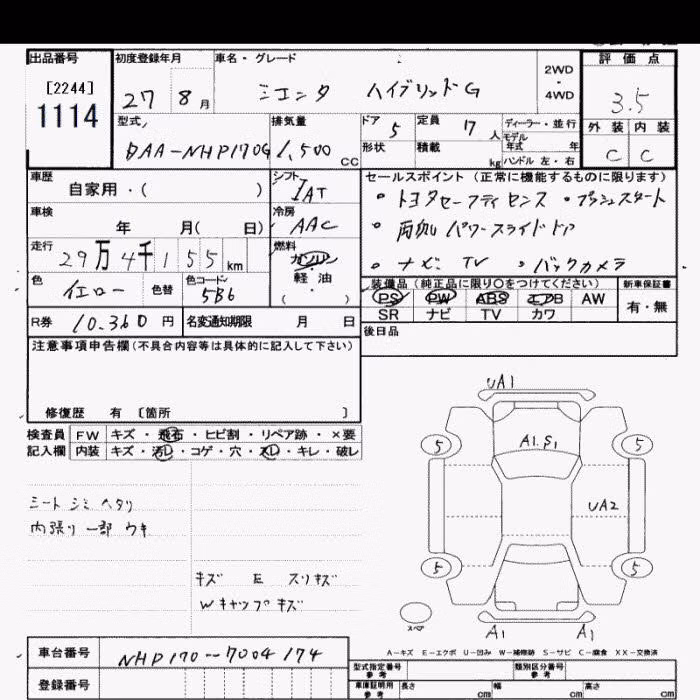 出品番号 初度登録年月 車名・グレード 評価点
[2244]
1114
27 8月 シエンタ ハイブリッドG 2WD・4WD 3.5
型式 排気量 ドア 5 定員 17人 ディーラー・並行 外装 内装
モデル年式 年
DAA-NHP170G 1,500CC 形状 積載 kg ハンドル 左・右 C C
車歴 シフト セールスポイント(正常に機能するものに限ります)
自家用・( ) IAT ・トヨタセーフティセンス ・プッシュスタート
車検 冷房 ・両側パワースライドドア
年 月( 日) AAC
走行 燃料 ・ナビ TV ・バックカメラ
29万4千155km ガソリン
軽・油
・( )
色 イエロー 色替 色コード 5B6
装備品(純正品に限り○をつけてください) 新車保証書
PS PW ABS エアB AW 有・無
SR ナビ TV カワ
R券 10,360円 名変通知期限 月 日
後日品
注意事項申告欄(不具合内容等は具体的に記入して下さい)
修復歴 有 〔箇所 〕
検査員 FW キズ・飛石・ヒビ割・リペア跡・×要
記入欄 内装 キズ・汚レ・コゲ・穴・スレ・キレ・破レ
シート シミ ヘタリ
内張り一部ウキ
キズ E スリキズ
Wキャップキズ
UA1
5 A1.S1 5
UA2
5 5
スペア A1 A1
A-キズ E-エクボ U-凹み W-補修跡 S-サビ C-腐食 XX-交換済
車台番号 NHP170-7004174
登録番号
型式指定番号 参考 類別区分番号 参考
車庫証明用 参考 長さ cm 幅 cm 高さ cm